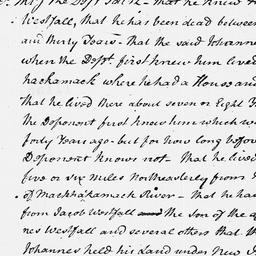 this Dep.t saith - that he knew
Westfall, that he has been dead between
and thirty Years - that the said Johannes
when the Dep.t first knew him lived
hackamack where he had a House and
that he lived there about seven or Eight
the Deponent first knew him which w
forty Years ago - but for how long before
Deponent knows not - that he lived
five or six miles Northeasterly from
of Mackhackamack River - that he ha
from Jacob Westfall the son of the
nes Westfall and several others that
Johannes held his Land under New